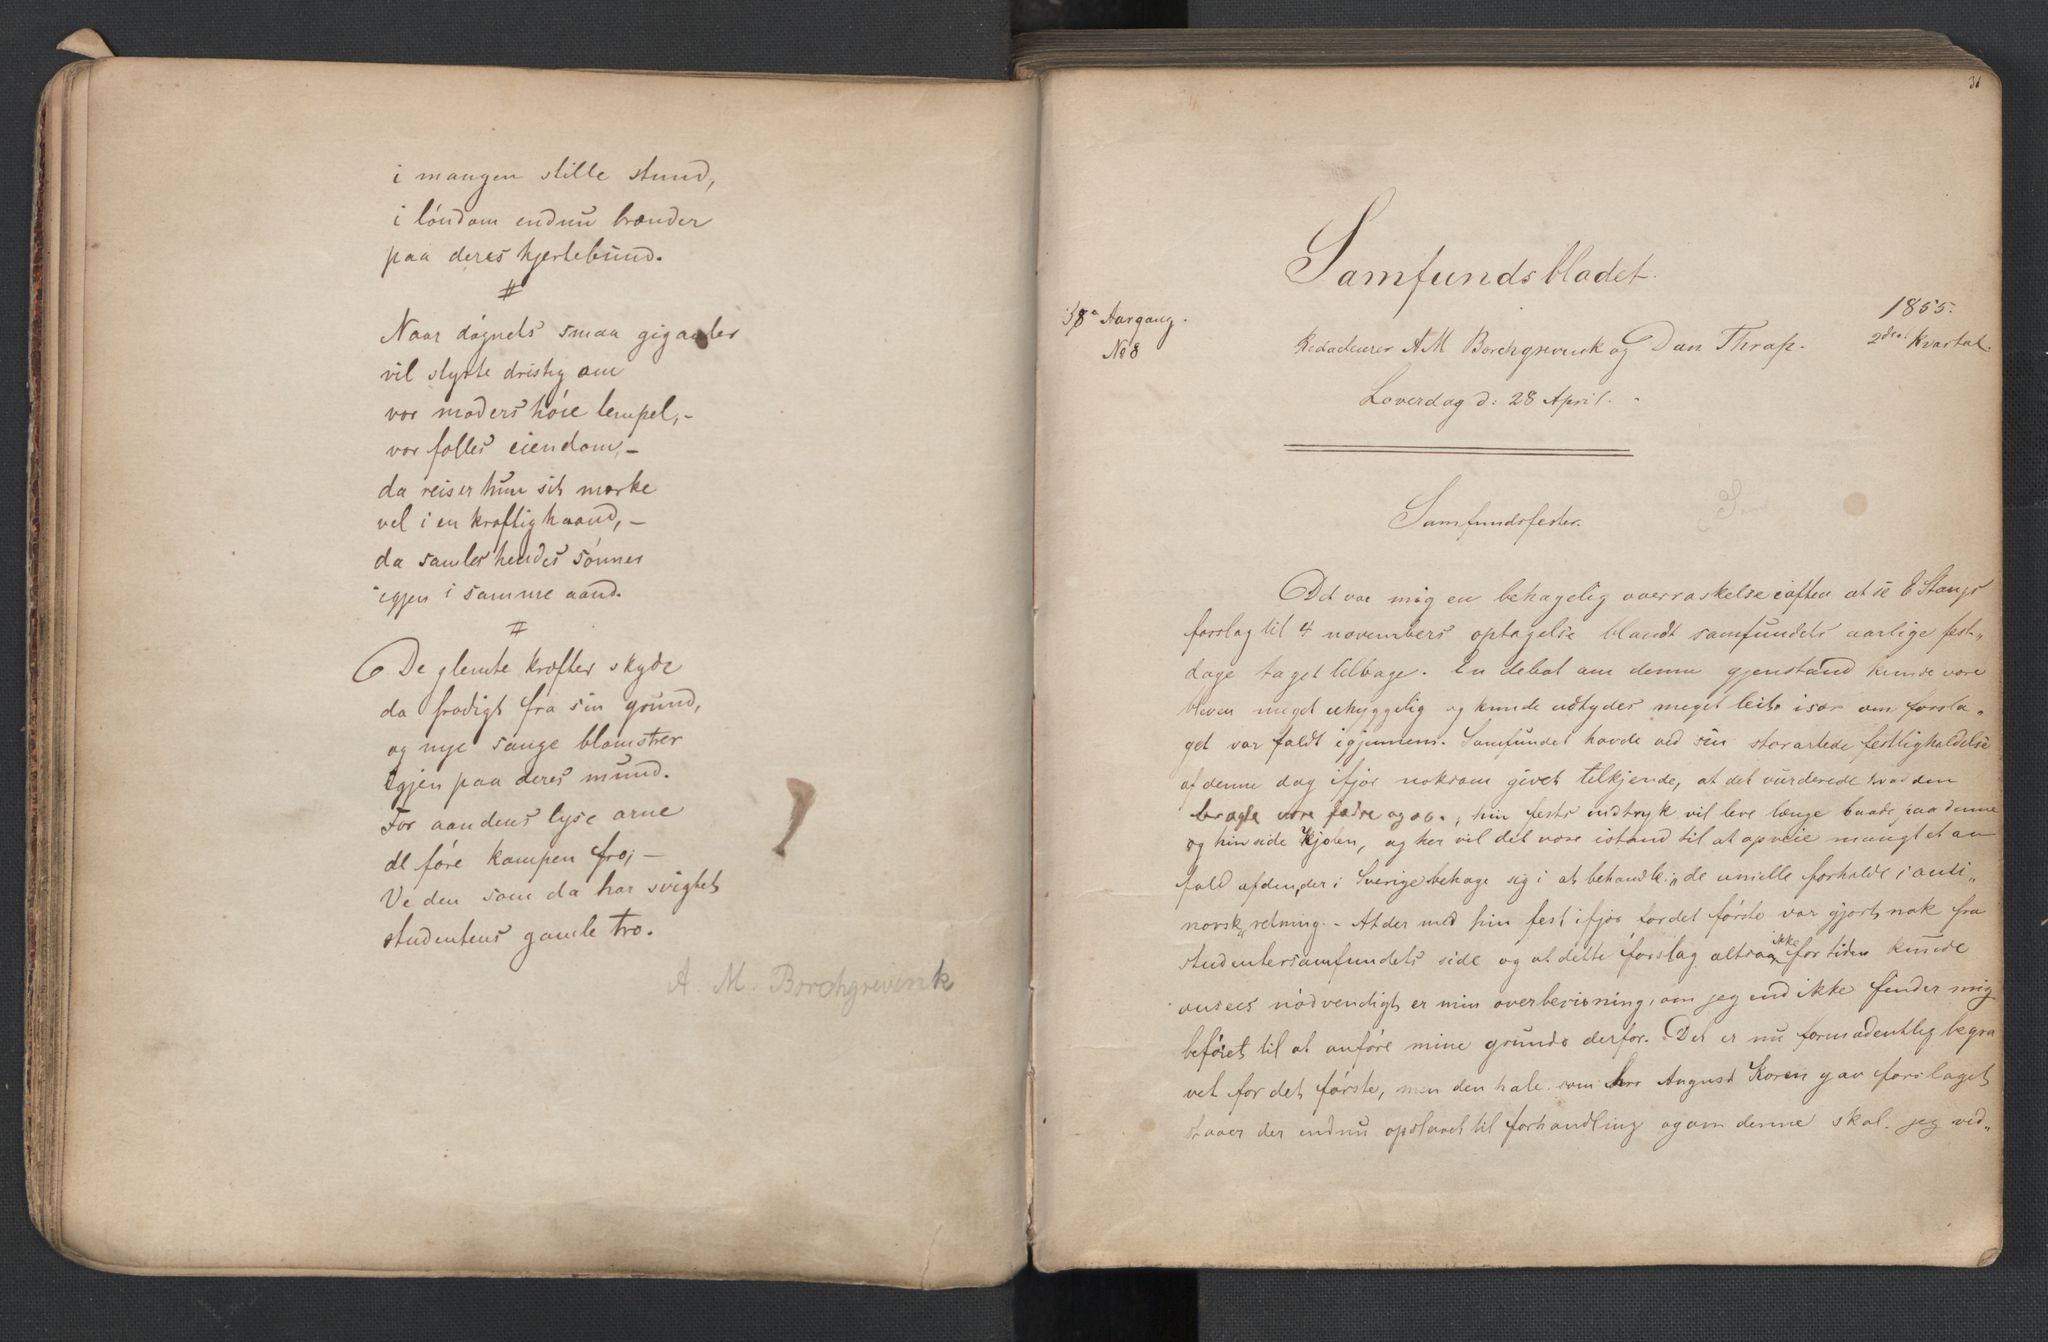 i mangen stille stund,
i lóndom endnu brænder
paa deres hjertebund.
#
Naar dógnets smaa giganter
vil styrte dristig om
vor moders hóie tempel, –
vor fælles eiendom, –
da reiser hun sit mærke
vel i en kraftig haand, –
da samler hendes sónner
igjen i samme aand.
#
De glemte kræfter skyde
da frodigt fra sin grund,
og nye sange blomstrer
igjen paa deres mund.
For aandens lyse arne
de fóre kampen fro; –
Ve den som da har svigtet
studentens gamle tro.
A. M. Borchgrevink
31
Samfundsbladet.
Aargang.
No 8
1855.
2det Kvartal.
Redacteurer A M Borchgrevink og Dan Thrap.
Loverdag d: 28 April.
Samfundsfester.
Det var mig en behagelig overraskelse iaften at se E Stangs
forslag til 4 novembers optagelse blandt samfundets aarlige fest„
dage taget tilbage. En debat om denne gjenstand kunde være
bleven meget uhyggelig og kunde udtydes meget leit, især om forsla„
get var faldt igjennem. Samfundet havde ved sin storartede festligholdelse
af denne dag ifjor noksom givet tilkjende, at det vurderede hvad den
bragte vore fædre og os.; hin fests indtryk vil leve længe baade paa denne
og hin side Kjølen, og her vil det være istand til at opveie mangt et an
fald af den, der i Sverige behage sig i at behandle „de unielle forholde i anti„
norsk„ retning. – At der med hin fest ifjor for det fórste var gjort nok fra
studentersamfundets side og at dette forslag altsaa ikke for tiden kunde
ansees nódvendigt er min overbevisning, om jeg end ikke finder mig
befóiet til at anfóre mine grunde derfor. Det er nu formodentlig begra
vet for det fórste, men den hale som hrr August Koren gav forslaget
staaer der endnu opslaaet til forhandling og om denne skal jeg ved„